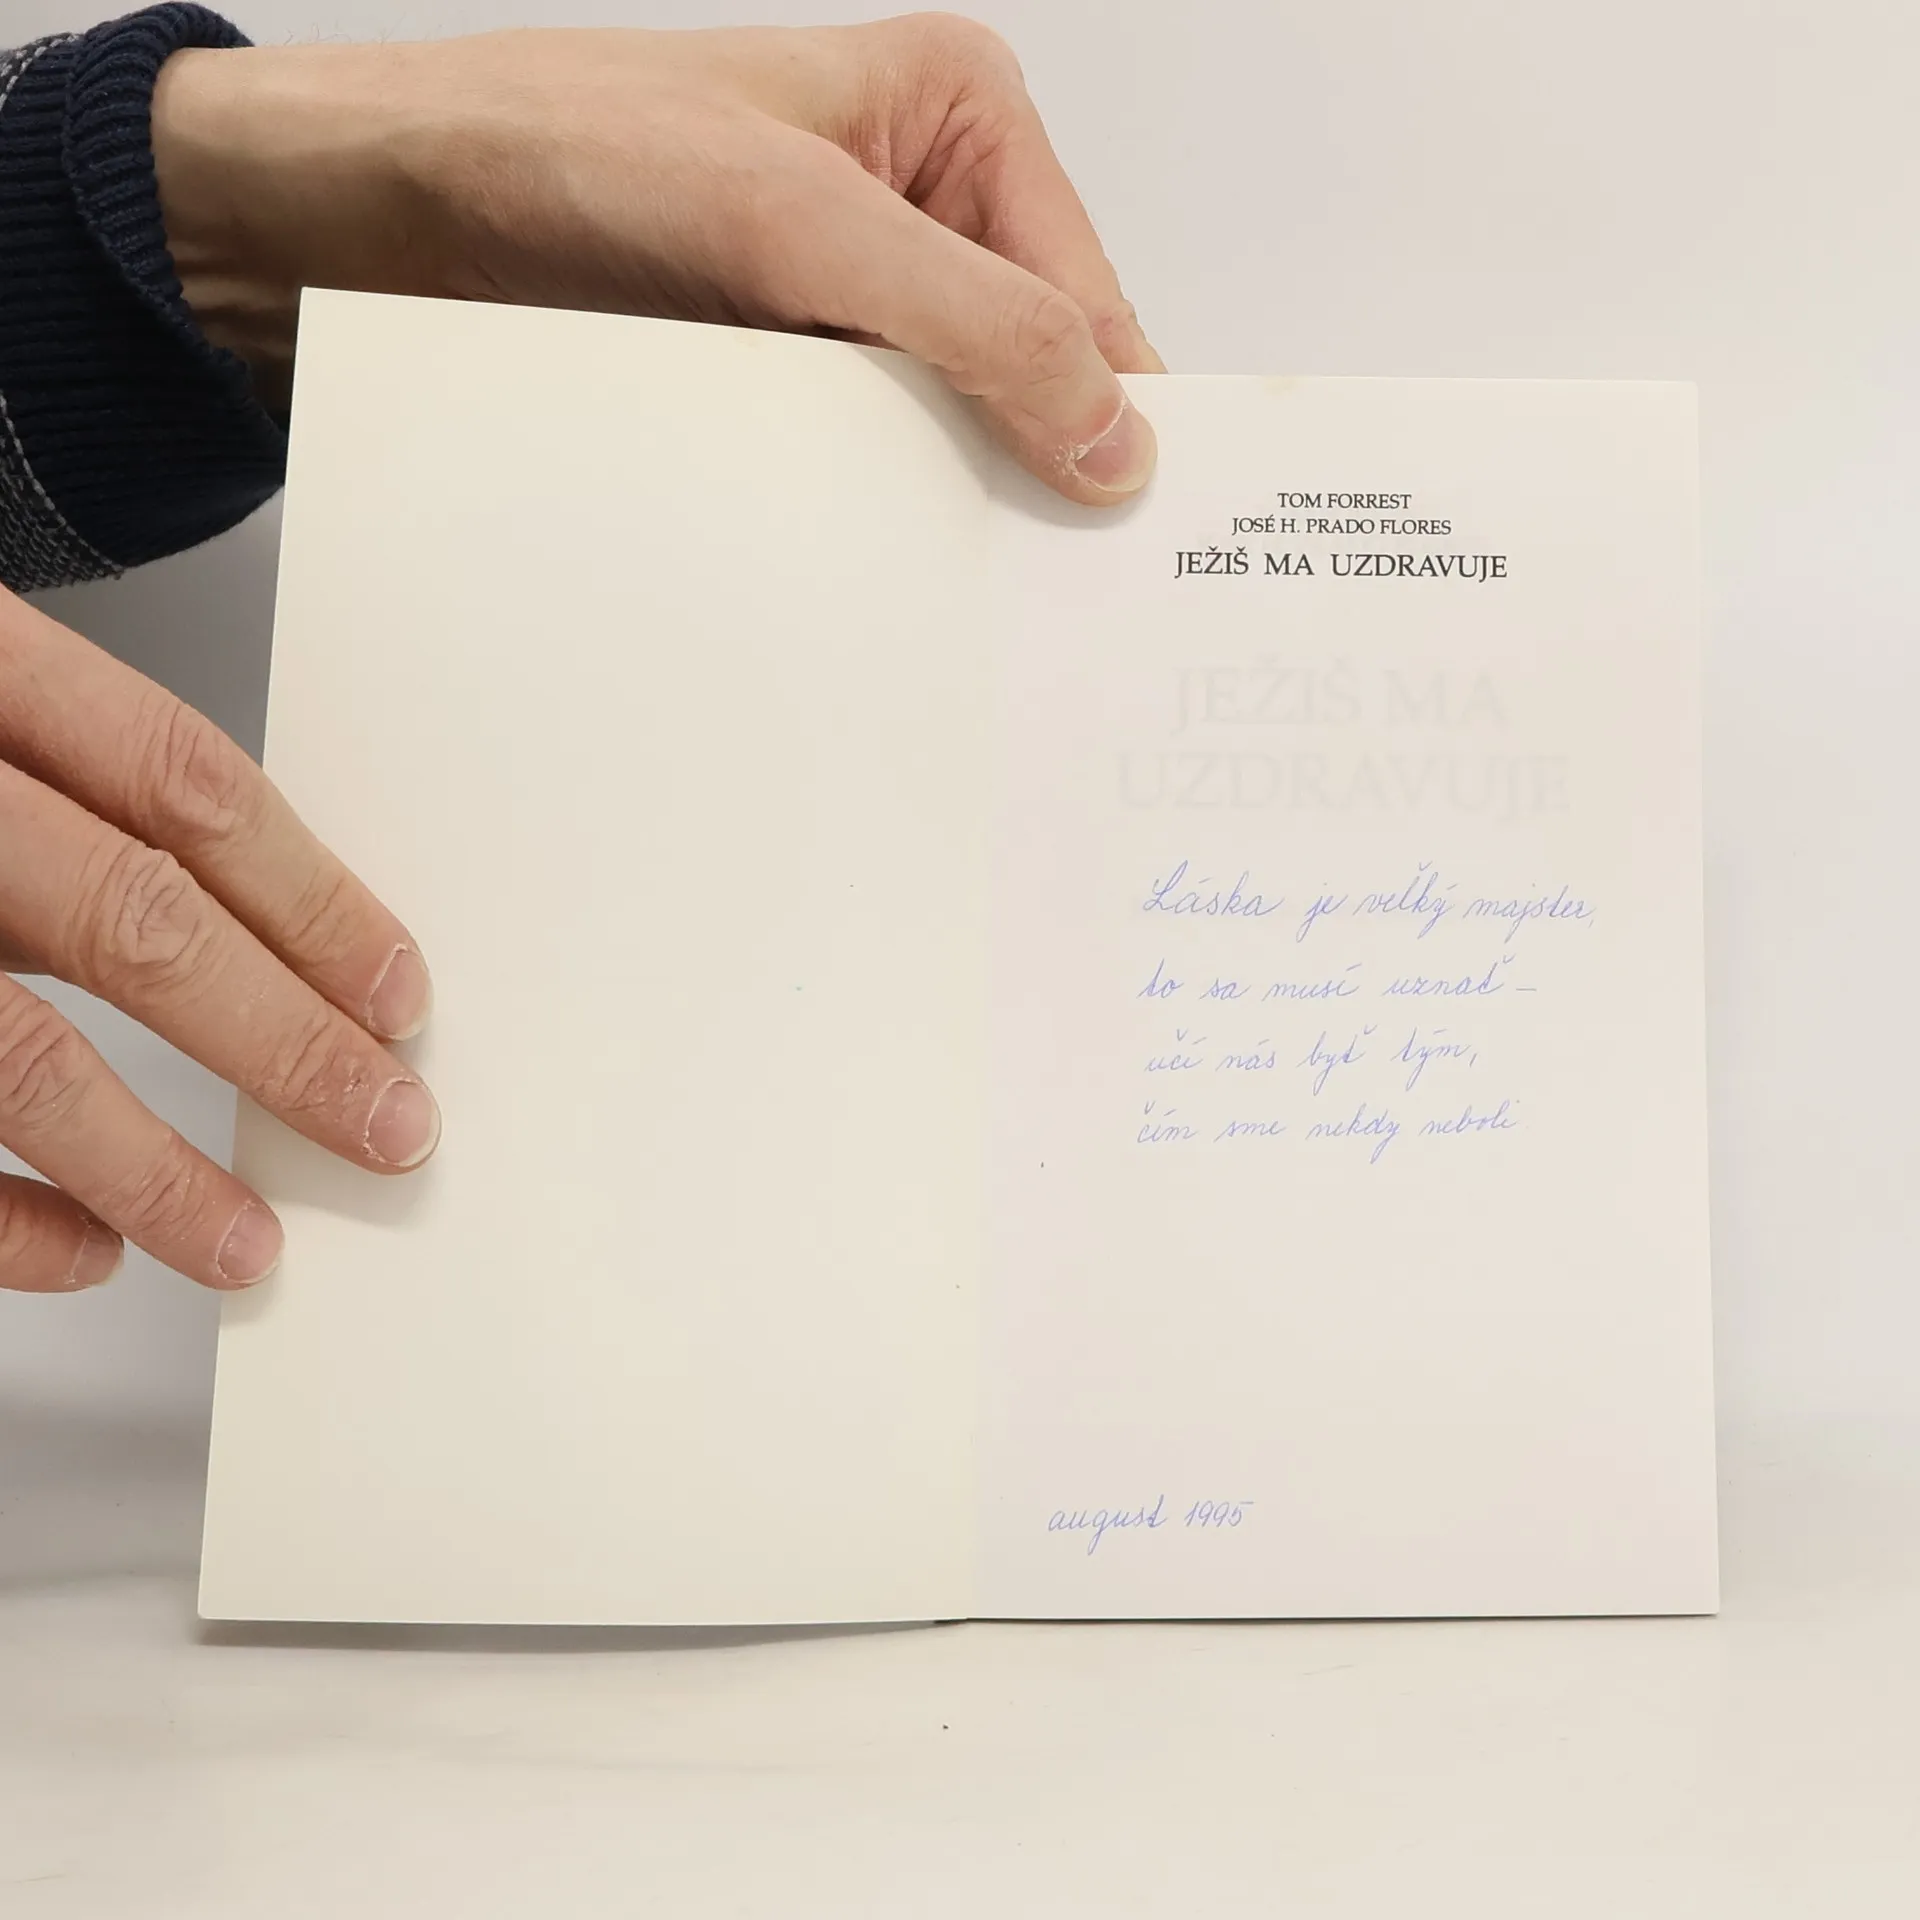 TOM FORREST
JOSÉ H. PRADO FLORES
JEŽIŠ MA UZDRAVUJE
JEŽIŠ MA
UZDRAVUJE
Láska je veľký majster,
to sa musí uznať –
učí nás byť tým,
čím sme nekdy neboli
august 1995